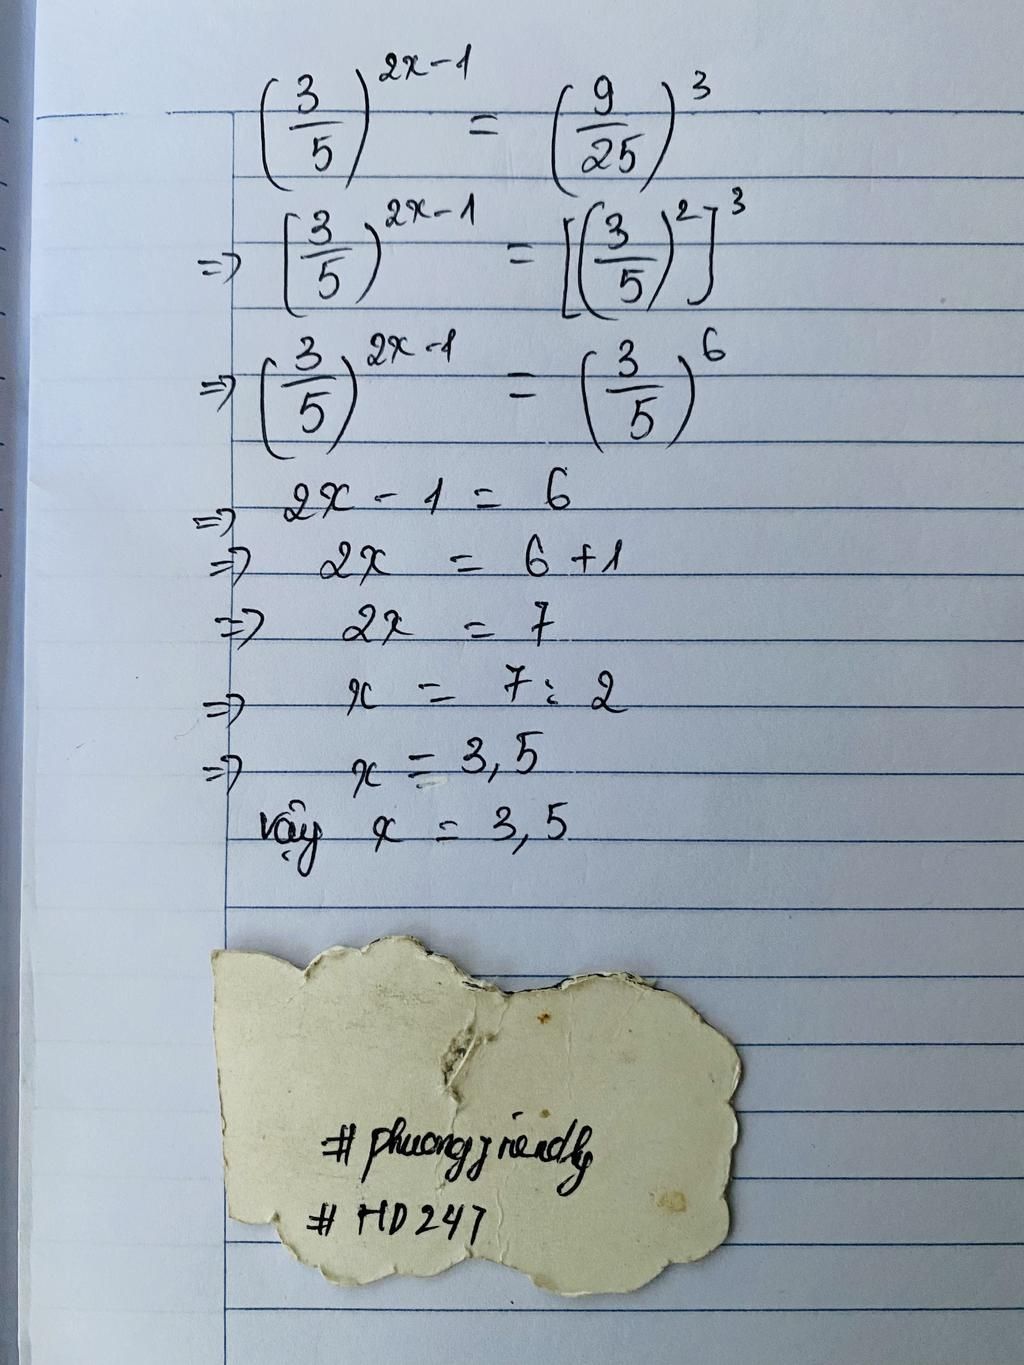 (3/5)^(2x-1) = (9/25)^3
=> [3/5)^(2x-1) = [(3/5)^2]^3
=> (3/5)^(2x-1) = (3/5)^6
=> 2x - 1 = 6
=> 2x = 6 + 1
=> 2x = 7
=> x = 7 : 2
=> x = 3,5
vậy x = 3,5
# phuongfriendly
# HD247